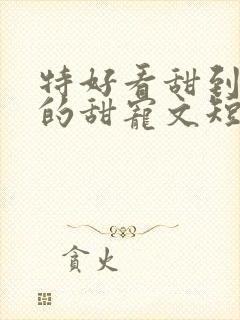 特好看甜到
的甜宠文短
贪火